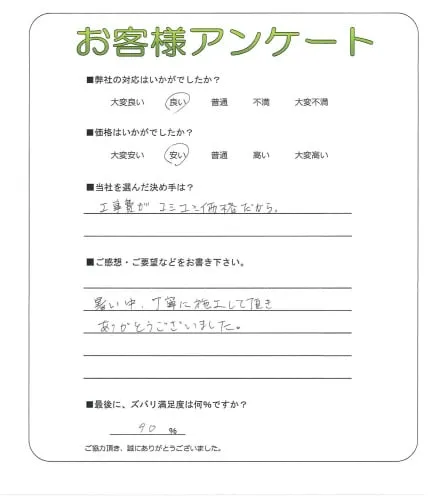 お客様アンケート
■弊社の対応はいかがでしたか？
大変良い 良い 普通 不満 大変不満
■価格はいかがでしたか？
大変安い 安い 普通 高い 大変高い
■当社を選んだ決め手は？
工事費がコミコミ価格だから。
■ご感想・ご要望などをお書き下さい。
暑い中、丁寧に施工して頂き
ありがとうございました。
■最後に、ズバリ満足度は何％ですか？
90 ％
ご協力頂き、誠にありがとうございました。